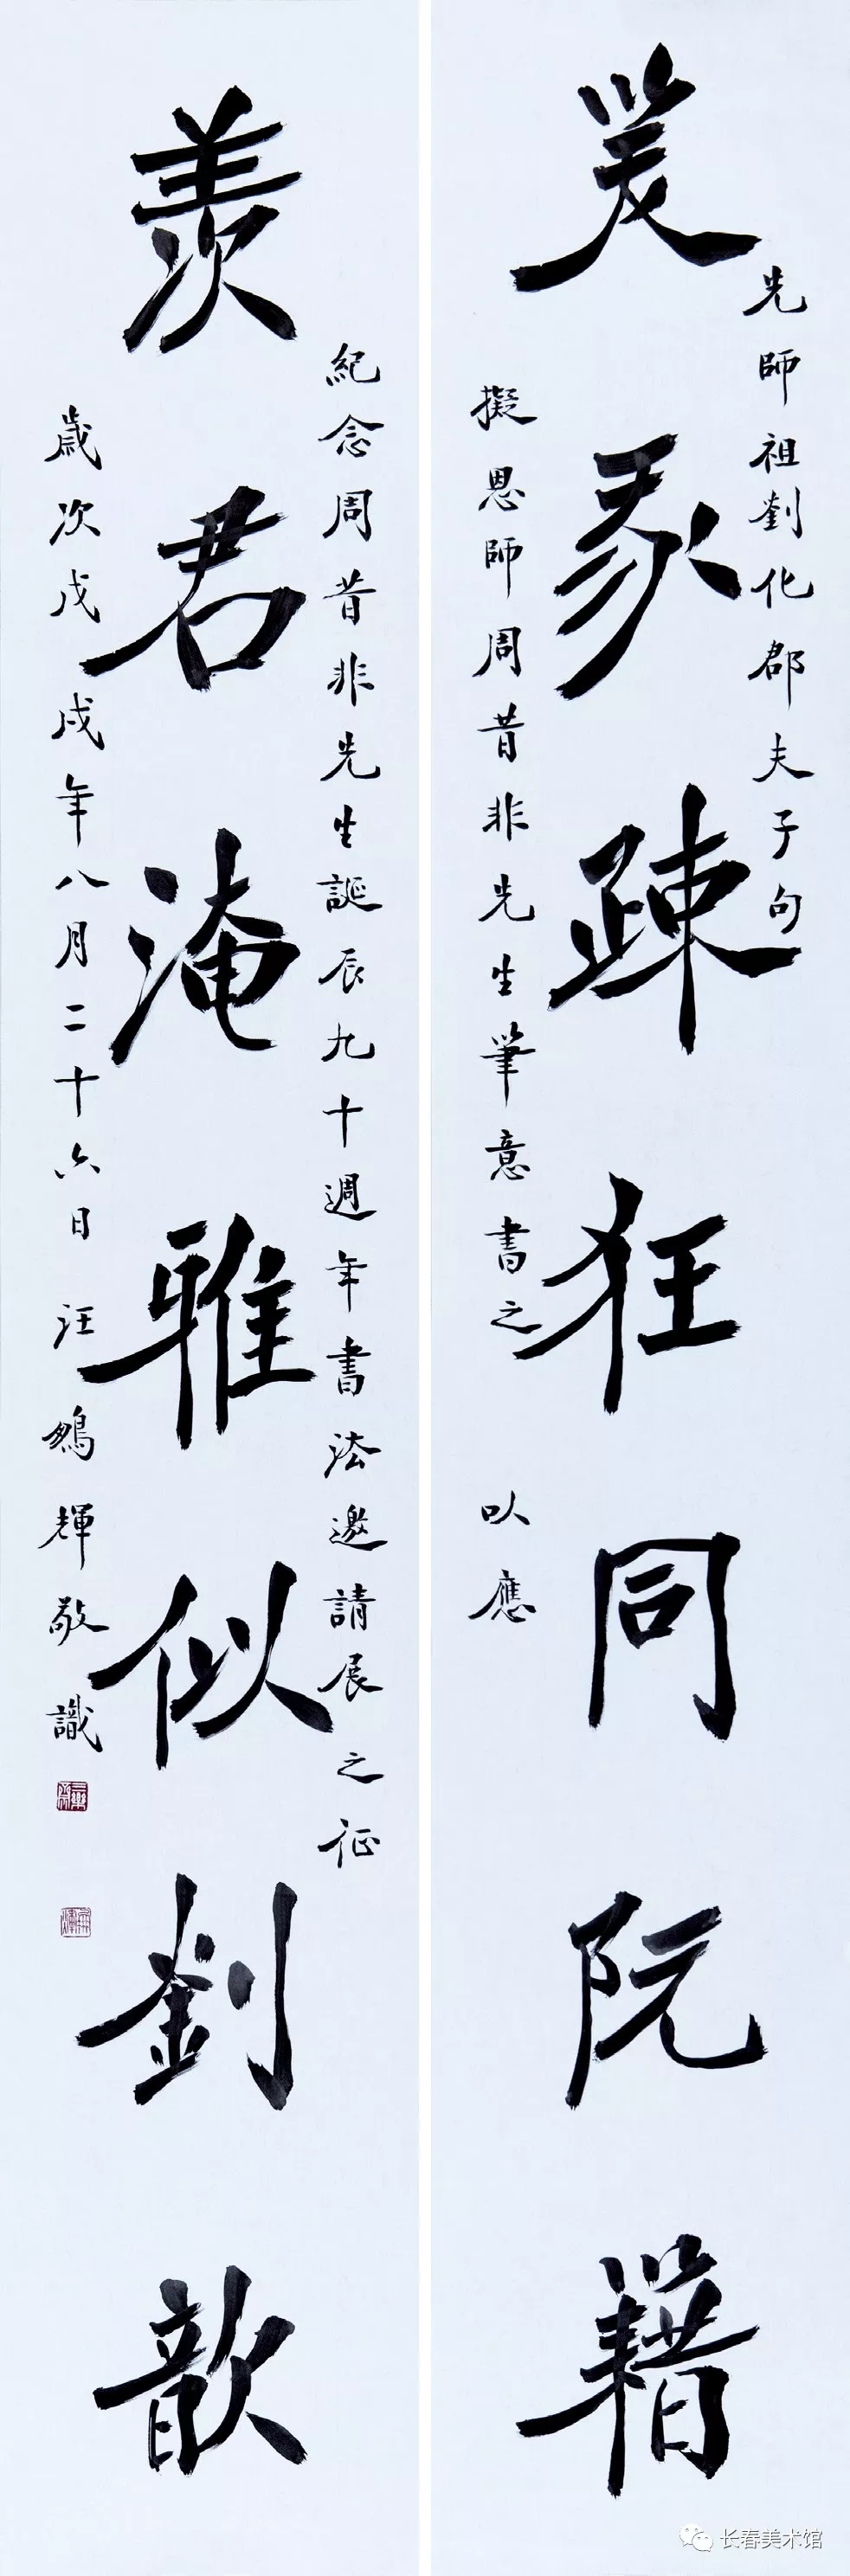 笑我疎狂同阮籍
先師祖劉化郡夫子句
擬恩師周昔非先生筆意書之 以應
羡君淹雅似劉歆
紀念周昔非先生誕辰九十週年書法邀請展之征
歲次戊戌年八月二十六日 汪輝敬識
长春美术馆